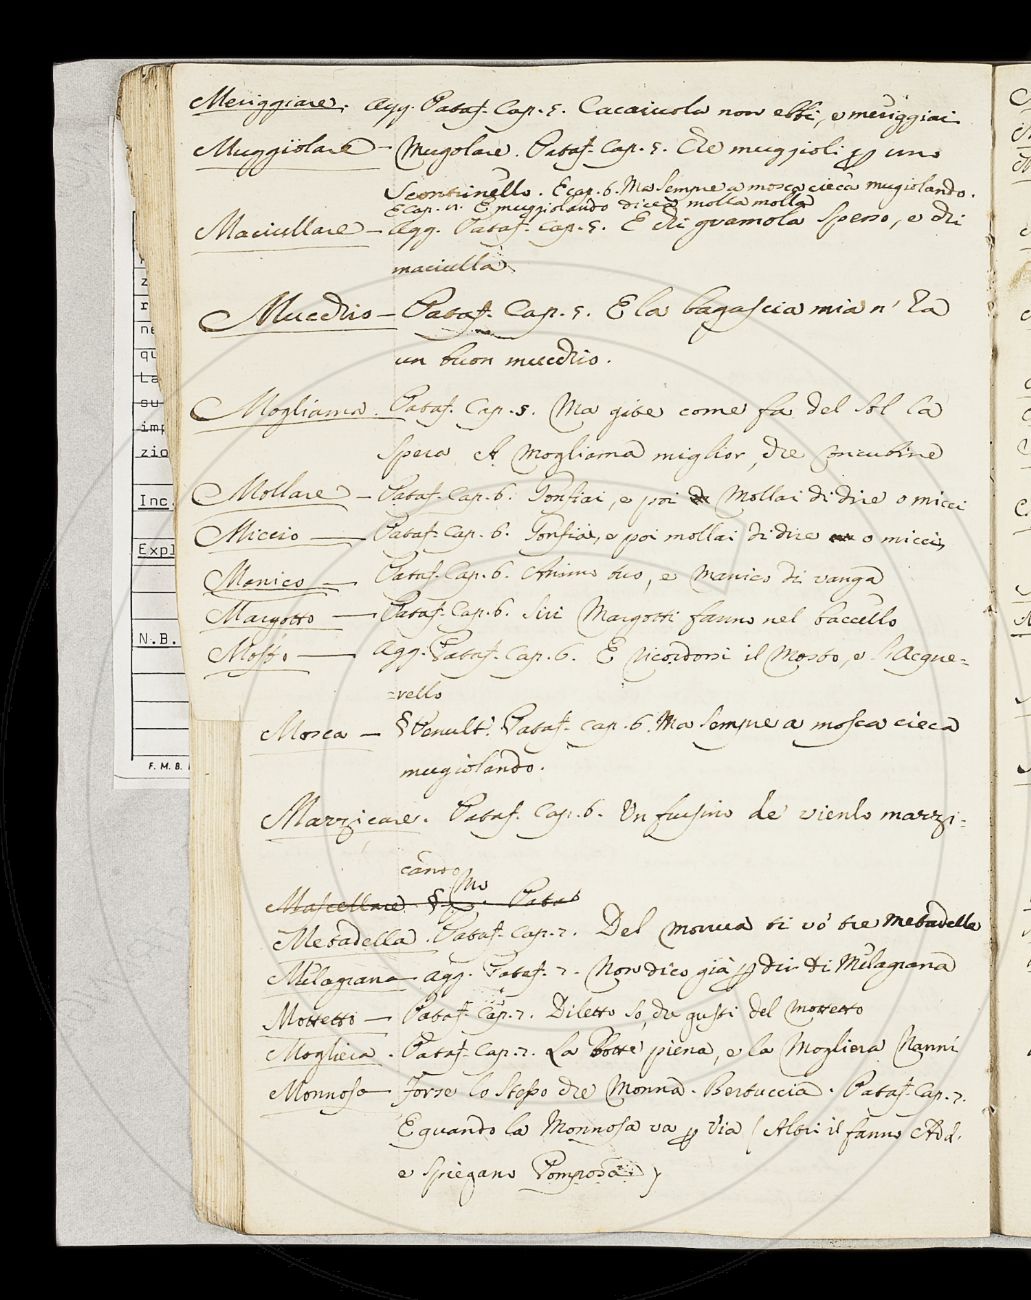 Meriggiare. Agg. Pataf. Cap. 5. Cacaiuola non ebbi, e meriggiai
Muggiolare - Mugolare. Pataf. Cap. 5. Che muggioli p uno
Scontrinello. E cap. 6. Ma sempre a mosca cieca mugiolando.
E Cap. E muggiolando dicea molla molla
Maciullare - Agg. Pataf. Cap. 5. E chi gramola spesso, e chi
maciulla
Mucchio - Pataf. Cap. 5. E la bagascia mia n' ha
un buon mucchio.
Mogliama. Pataf. Cap. 5. Ma gite come fa del sol la
spera A Mogliama miglior, che concubine
Mollare - Pataf. Cap. 6. Gonfiai, e poi Mollai di dire o micci
Miccio - Pataf. Cap. 6. Gonfiai, e poi mollai di dire o micci
Manico - Pataf. Cap. 6. Animo tuo, e Manico di vanga
Margotto - Pataf. Cap. 6. Sui Margotti fanno nel baccello
Mosto - Agg. Pataf. Cap. 6. E ricordorsi il Mosto, e l'Acque=
=rello
Mosca - § Penult. Pataf. Cap. 6. Ma sempre a mosca cieca
mugiolando.
Marzicare. Pataf. Cap. 6. Un fusino de' vienlo marzi=
cando
Mascellare § Mo. Pataf
Metadella. Pataf. Cap. 7. Del monna ti vo' tre metadelle
Milagrana - Agg. Pataf. 7. Non dico già p dir di Milagrana
Mottetto - Pataf. Cap. 7. Diletto so, che gusti del mottetto
Mogliera. Pataf. Cap. 7. La Botte piena, e la Mogliera Nanni
Monnosa - Forse lo stesso che Monna. Bertuccia. Pataf. Cap. 7.
E quando la Monnosa va p via (Altri il fanno Add.
e spiegano Pomposa)
z
r
ne
qu
La
su
imp
zio
Inc.
Expl
N.B.
F. M. B.